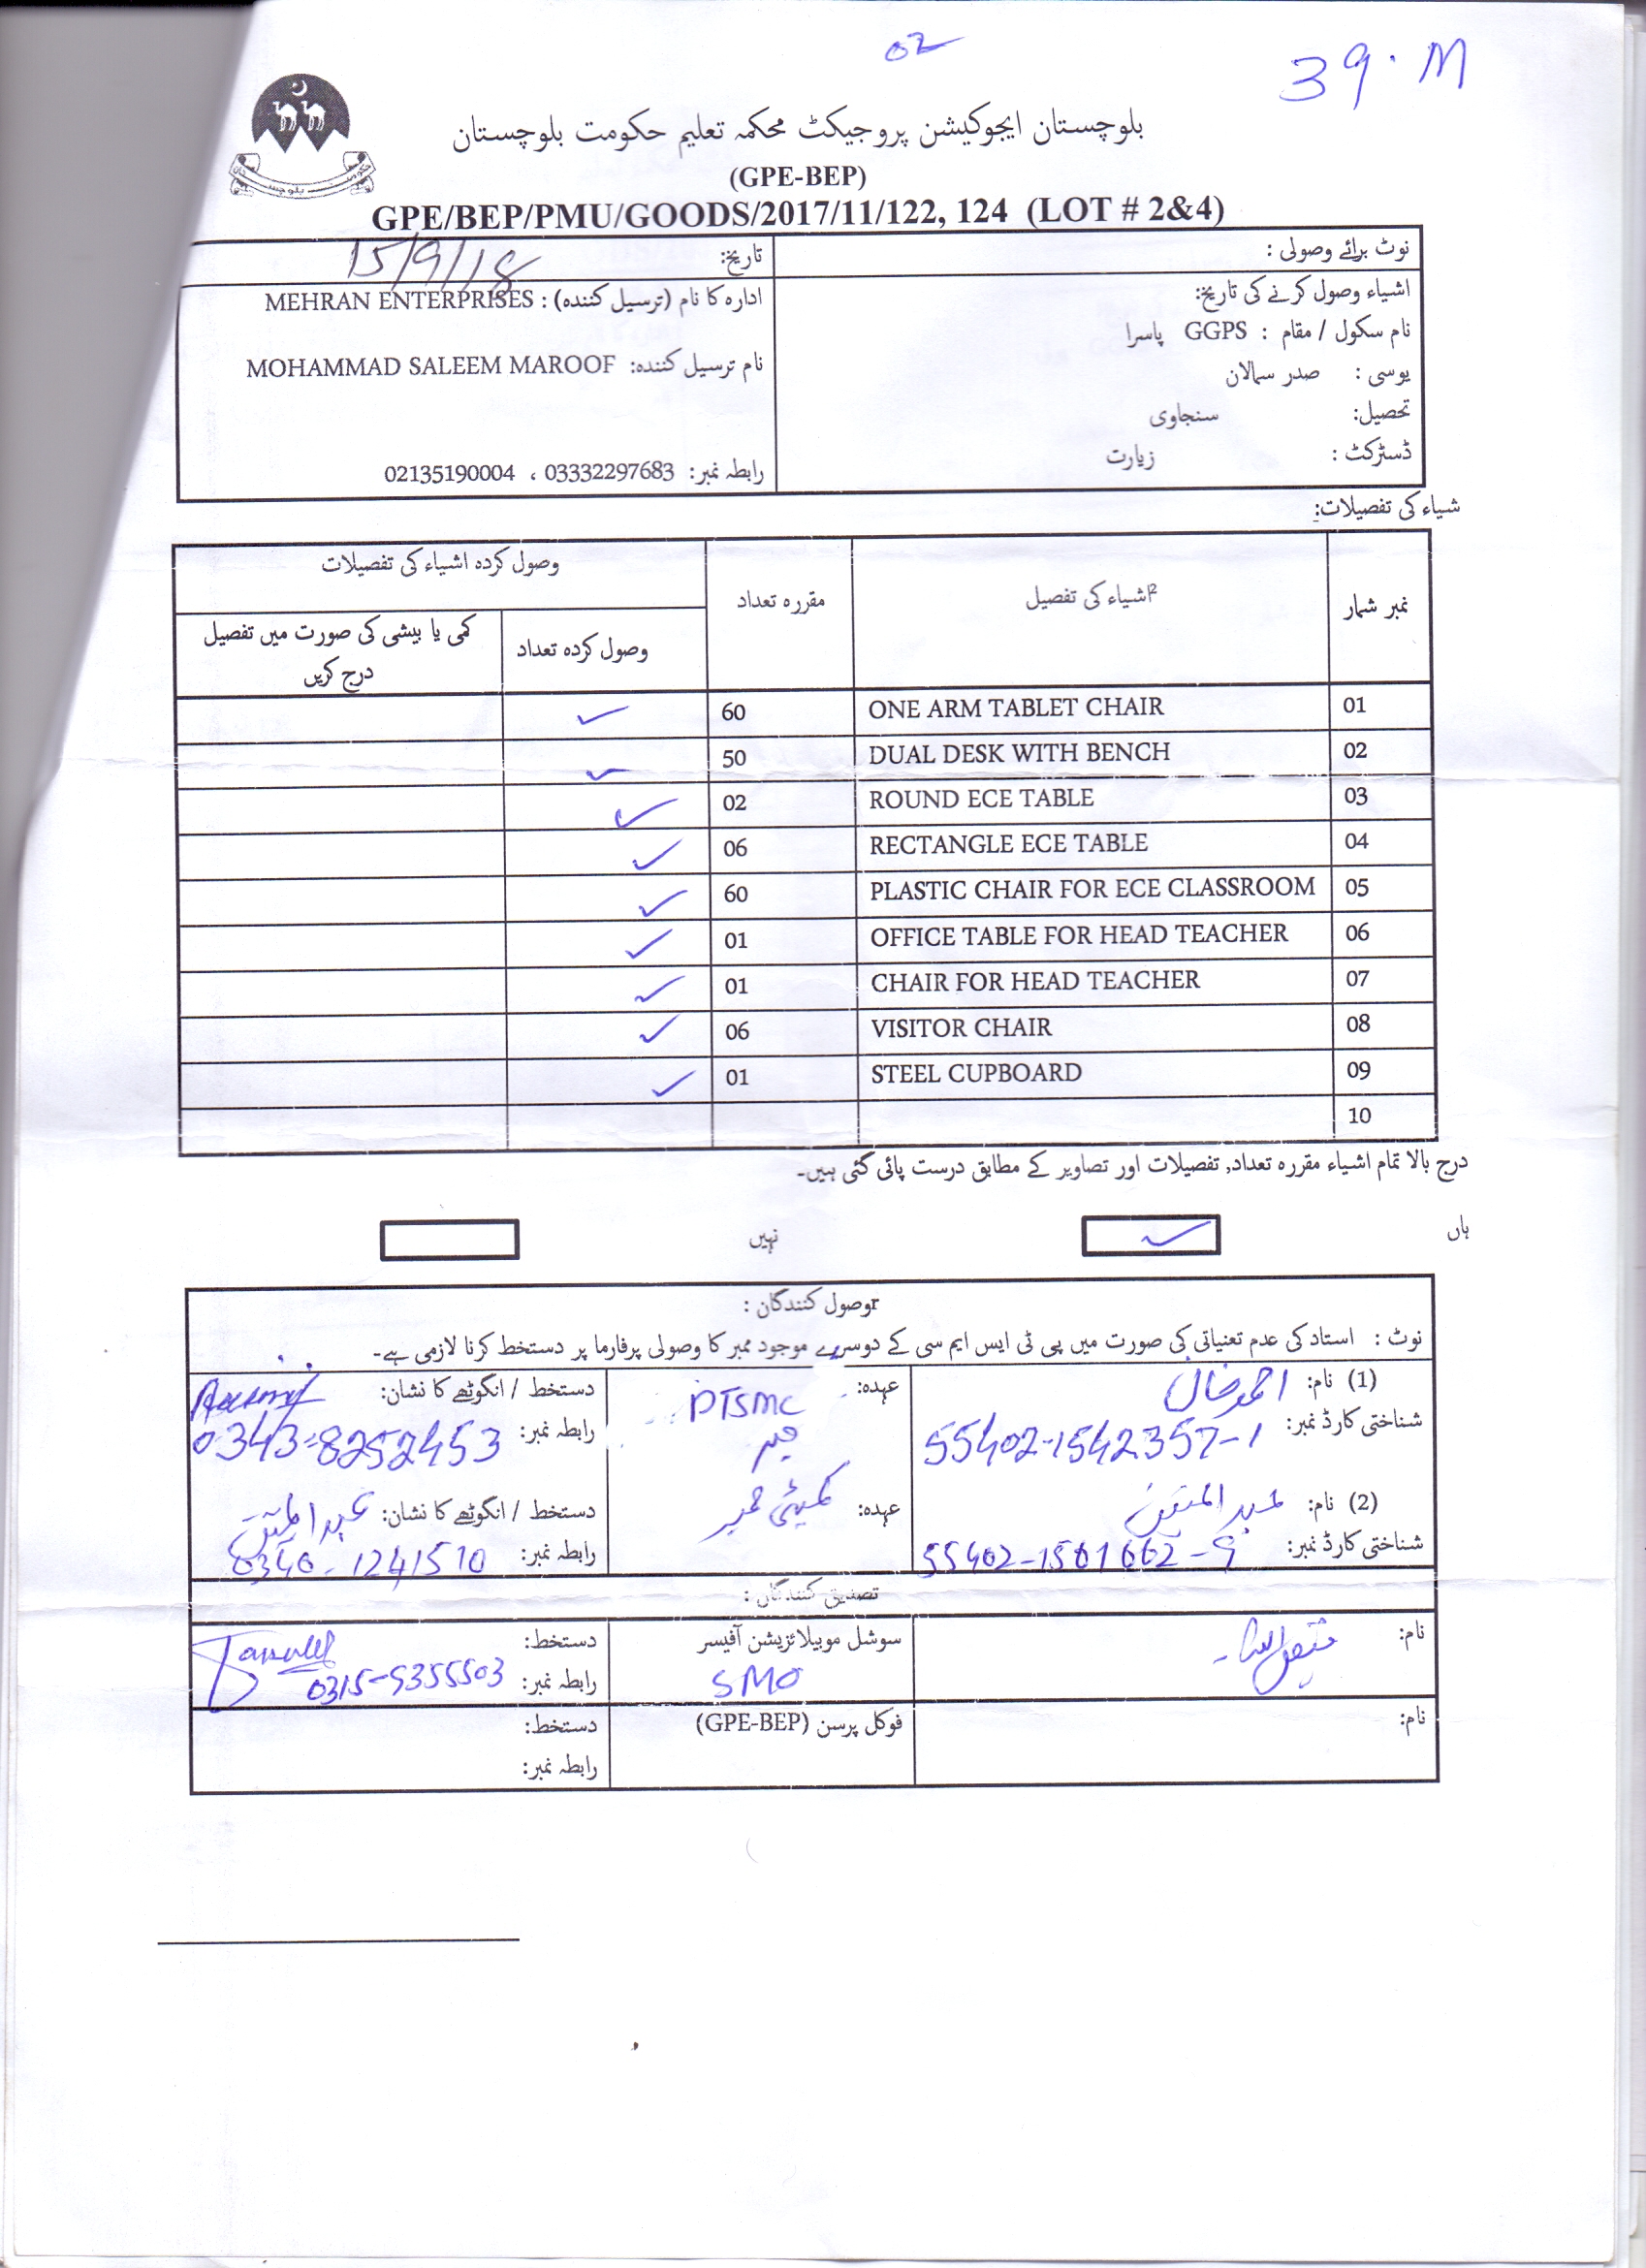 02
39.M
بلوچستان ایجوکیشن پروجیکٹ محکمہ تعلیم حکومت بلوچستان
(GPE-BEP)
GPE/BEP/PMU/GOODS/2017/11/122, 124 (LOT # 2&4)
نوٹ برائے وصولی :
تاریخ: 15/9/18
اشیاء وصول کرنے کی تاریخ:
ادارہ کا نام (ترسیل کنندہ) : MEHRAN ENTERPRISES
نام سکول / مقام : GGPS پاسرا
نام ترسیل کنندہ: MOHAMMAD SALEEM MAROOF
یوسی : صدر سمالان
تحصیل: سنجاوی
ڈسٹرکٹ : زیارت
رابطہ نمبر: 03332297683 ، 02135190004
شیاء کی تفصیلات:
نمبر شمار اشیاء کی تفصیل مقررہ تعداد وصول کردہ اشیاء کی تفصیلات
وصول کردہ تعداد کمی یا بیشی کی صورت میں تفصیل درج کریں
01 ONE ARM TABLET CHAIR 60 ✓
02 DUAL DESK WITH BENCH 50 ✓
03 ROUND ECE TABLE 02 ✓
04 RECTANGLE ECE TABLE 06 ✓
05 PLASTIC CHAIR FOR ECE CLASSROOM 60 ✓
06 OFFICE TABLE FOR HEAD TEACHER 01 ✓
07 CHAIR FOR HEAD TEACHER 01 ✓
08 VISITOR CHAIR 06 ✓
09 STEEL CUPBOARD 01 ✓
10
درج بالا تمام اشیاء مقررہ تعداد, تفصیلات اور تصاویر کے مطابق درست پائی گئی ہیں۔
ہاں ✓ نہیں
وصول کنندگان :
نوٹ : استاد کی عدم تعنیاتی کی صورت میں پی ٹی ایس ایم سی کے دوسرے موجود ممبر کا وصولی پرفارما پر دستخط کرنا لازمی ہے۔
(1) نام: احمد خان عہدہ: PTSMC دستخط / انگوٹھے کا نشان:
شناختی کارڈ نمبر: 55402-1542357-1 رابطہ نمبر: 0343-8252453
(2) نام: عبدالمتین عہدہ: کمیٹی ممبر دستخط / انگوٹھے کا نشان: عبدالمتین
شناختی کارڈ نمبر: 55402-1501662-9 رابطہ نمبر: 0340-1241510
تصدیق کنندگان :
نام: سوشل موبیلائزیشن آفیسر دستخط:
SMO رابطہ نمبر: 0315-9355503
نام: فوکل پرسن (GPE-BEP) دستخط:
رابطہ نمبر: